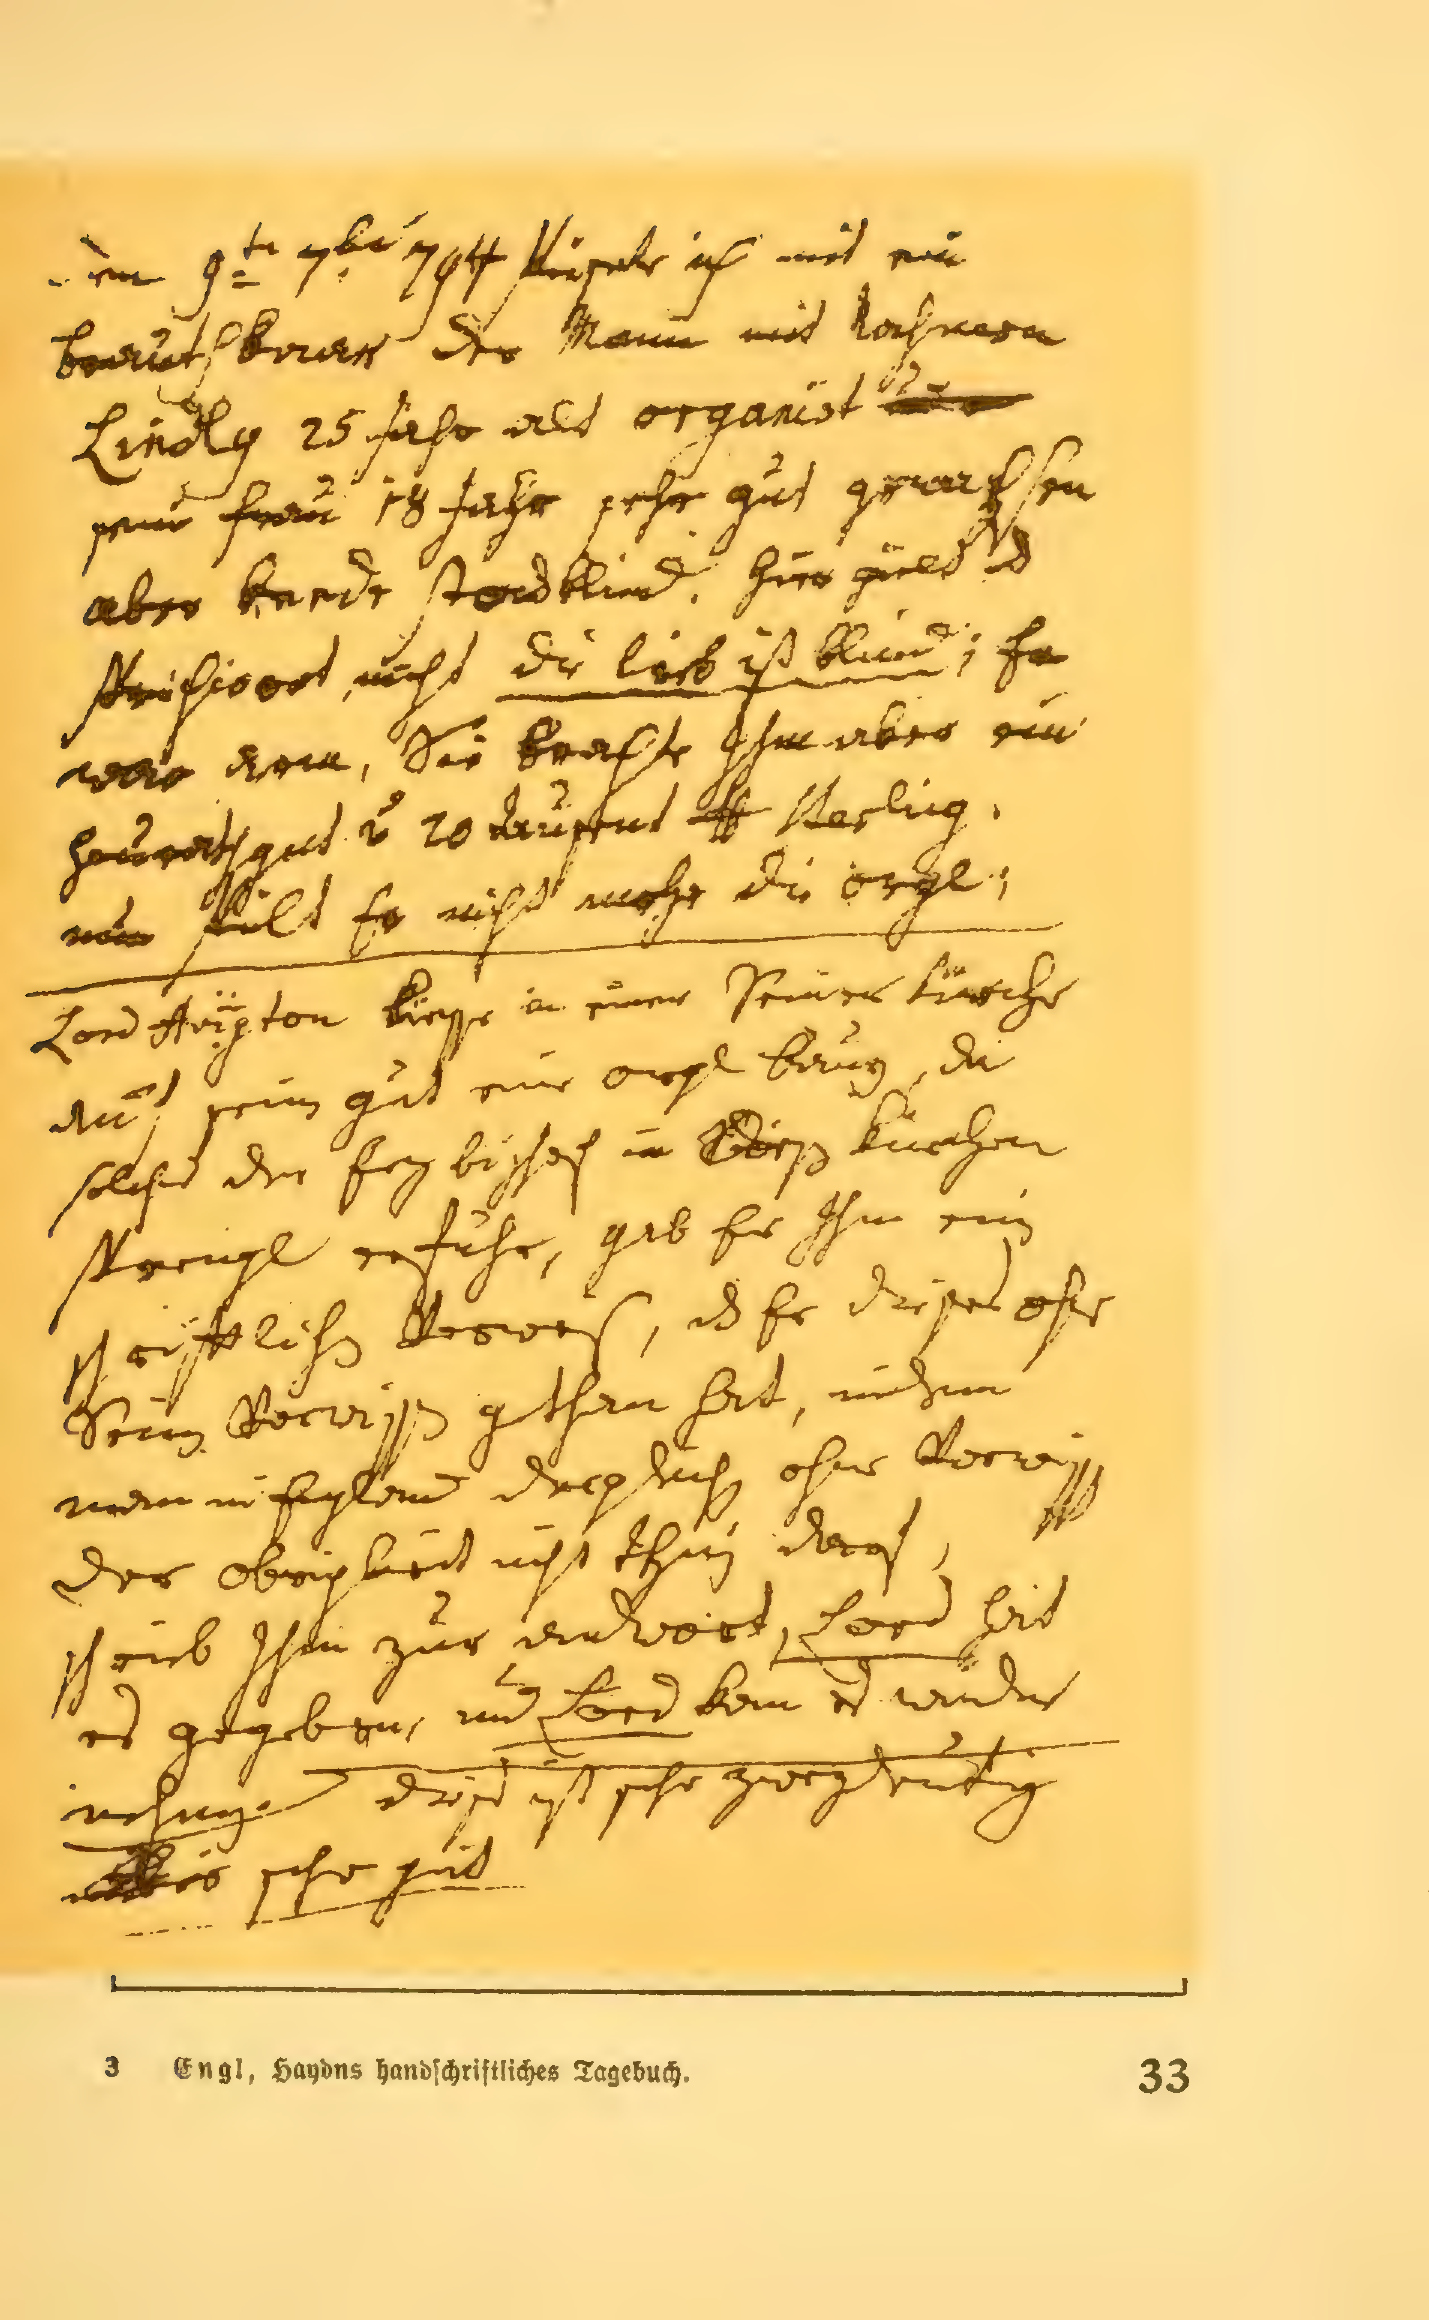 den 9ten 7ber 794 speiste ich mit ein
brauth baar der Mann mit Nahmen
Lindly 25 Jahr alt organist
seine frau 18 Jahr sehr gut gewachsen
aber beede stockblind. hier gielt das
sprichwort nicht die lieb ist blind; Er
war arm, Sie brachte Ihm aber ein
heurathsgut v 20 tausent ff sterling.
nun spielt Er nicht mehr die orgl;
Lord liesse in einer Seiner kirche
auf sein gut eine orgl bauen, da
solches der Erzbischof in kirchen
erfuhr, gab Er Ihm ein
schriftlichen Verweiß, das Er dieses ohne
Seinen Vorwissen gethan hat, indem
man in Engelland dergleichen ohne Vorwissen
der obrigkeit nicht thun darf,
schrieb Ihm zur andwort, Lord hat
es gegeben, und Lord kan es wieder
nehmen. dieses ist sehr zweydeutig
aber sehr gut
3 Engl, Haydns handschriftliches Tagebuch.
33